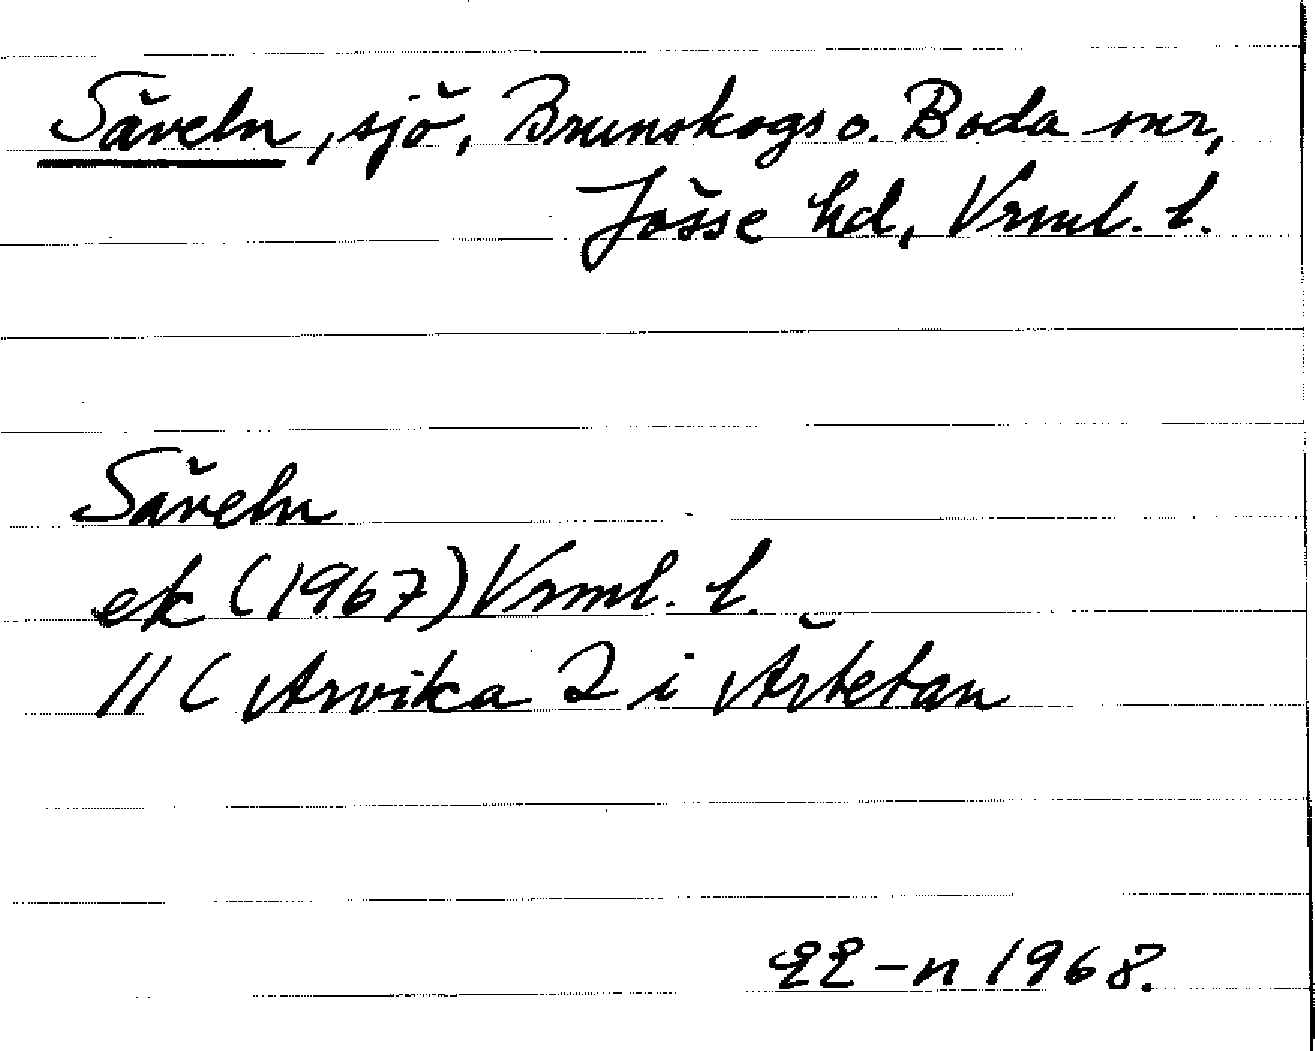 Säveln, sjö, Brunskogs o. Boda snr,
Jösse hd, Vrml. l.
Säveln
ek (1967) Vrml. l.
11C Arvika 2 i Årtetan
EE-n 1968.